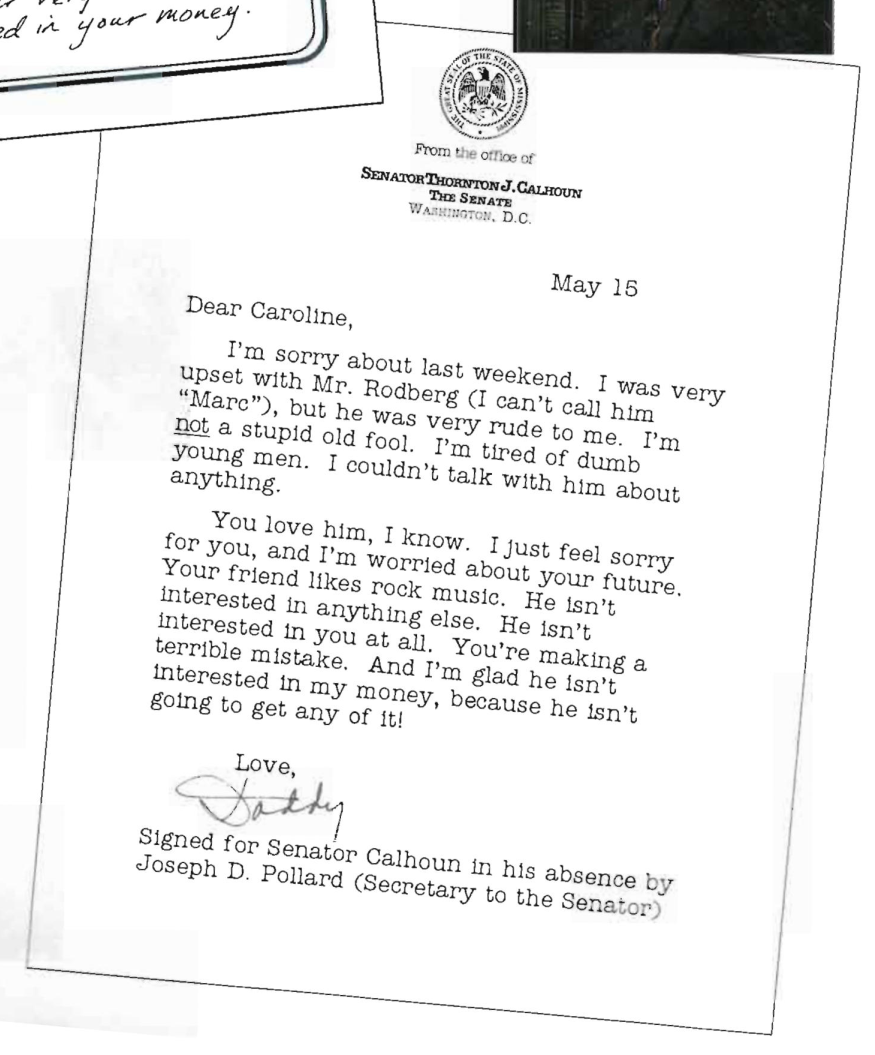 ed in your money.
THE GREAT SEAL OF THE STATE OF MISSISSIPPI
From the office of
SENATOR THORNTON J. CALHOUN
THE SENATE
WASHINGTON, D.C.
May 15
Dear Caroline,
I'm sorry about last weekend. I was very
upset with Mr. Rodberg (I can't call him
"Marc"), but he was very rude to me. I'm
not a stupid old fool. I'm tired of dumb
young men. I couldn't talk with him about
anything.
You love him, I know. I just feel sorry
for you, and I'm worried about your future.
Your friend likes rock music. He isn't
interested in anything else. He isn't
interested in you at all. You're making a
terrible mistake. And I'm glad he isn't
interested in my money, because he isn't
going to get any of it!
Love,
Daddy
Signed for Senator Calhoun in his absence by
Joseph D. Pollard (Secretary to the Senator)